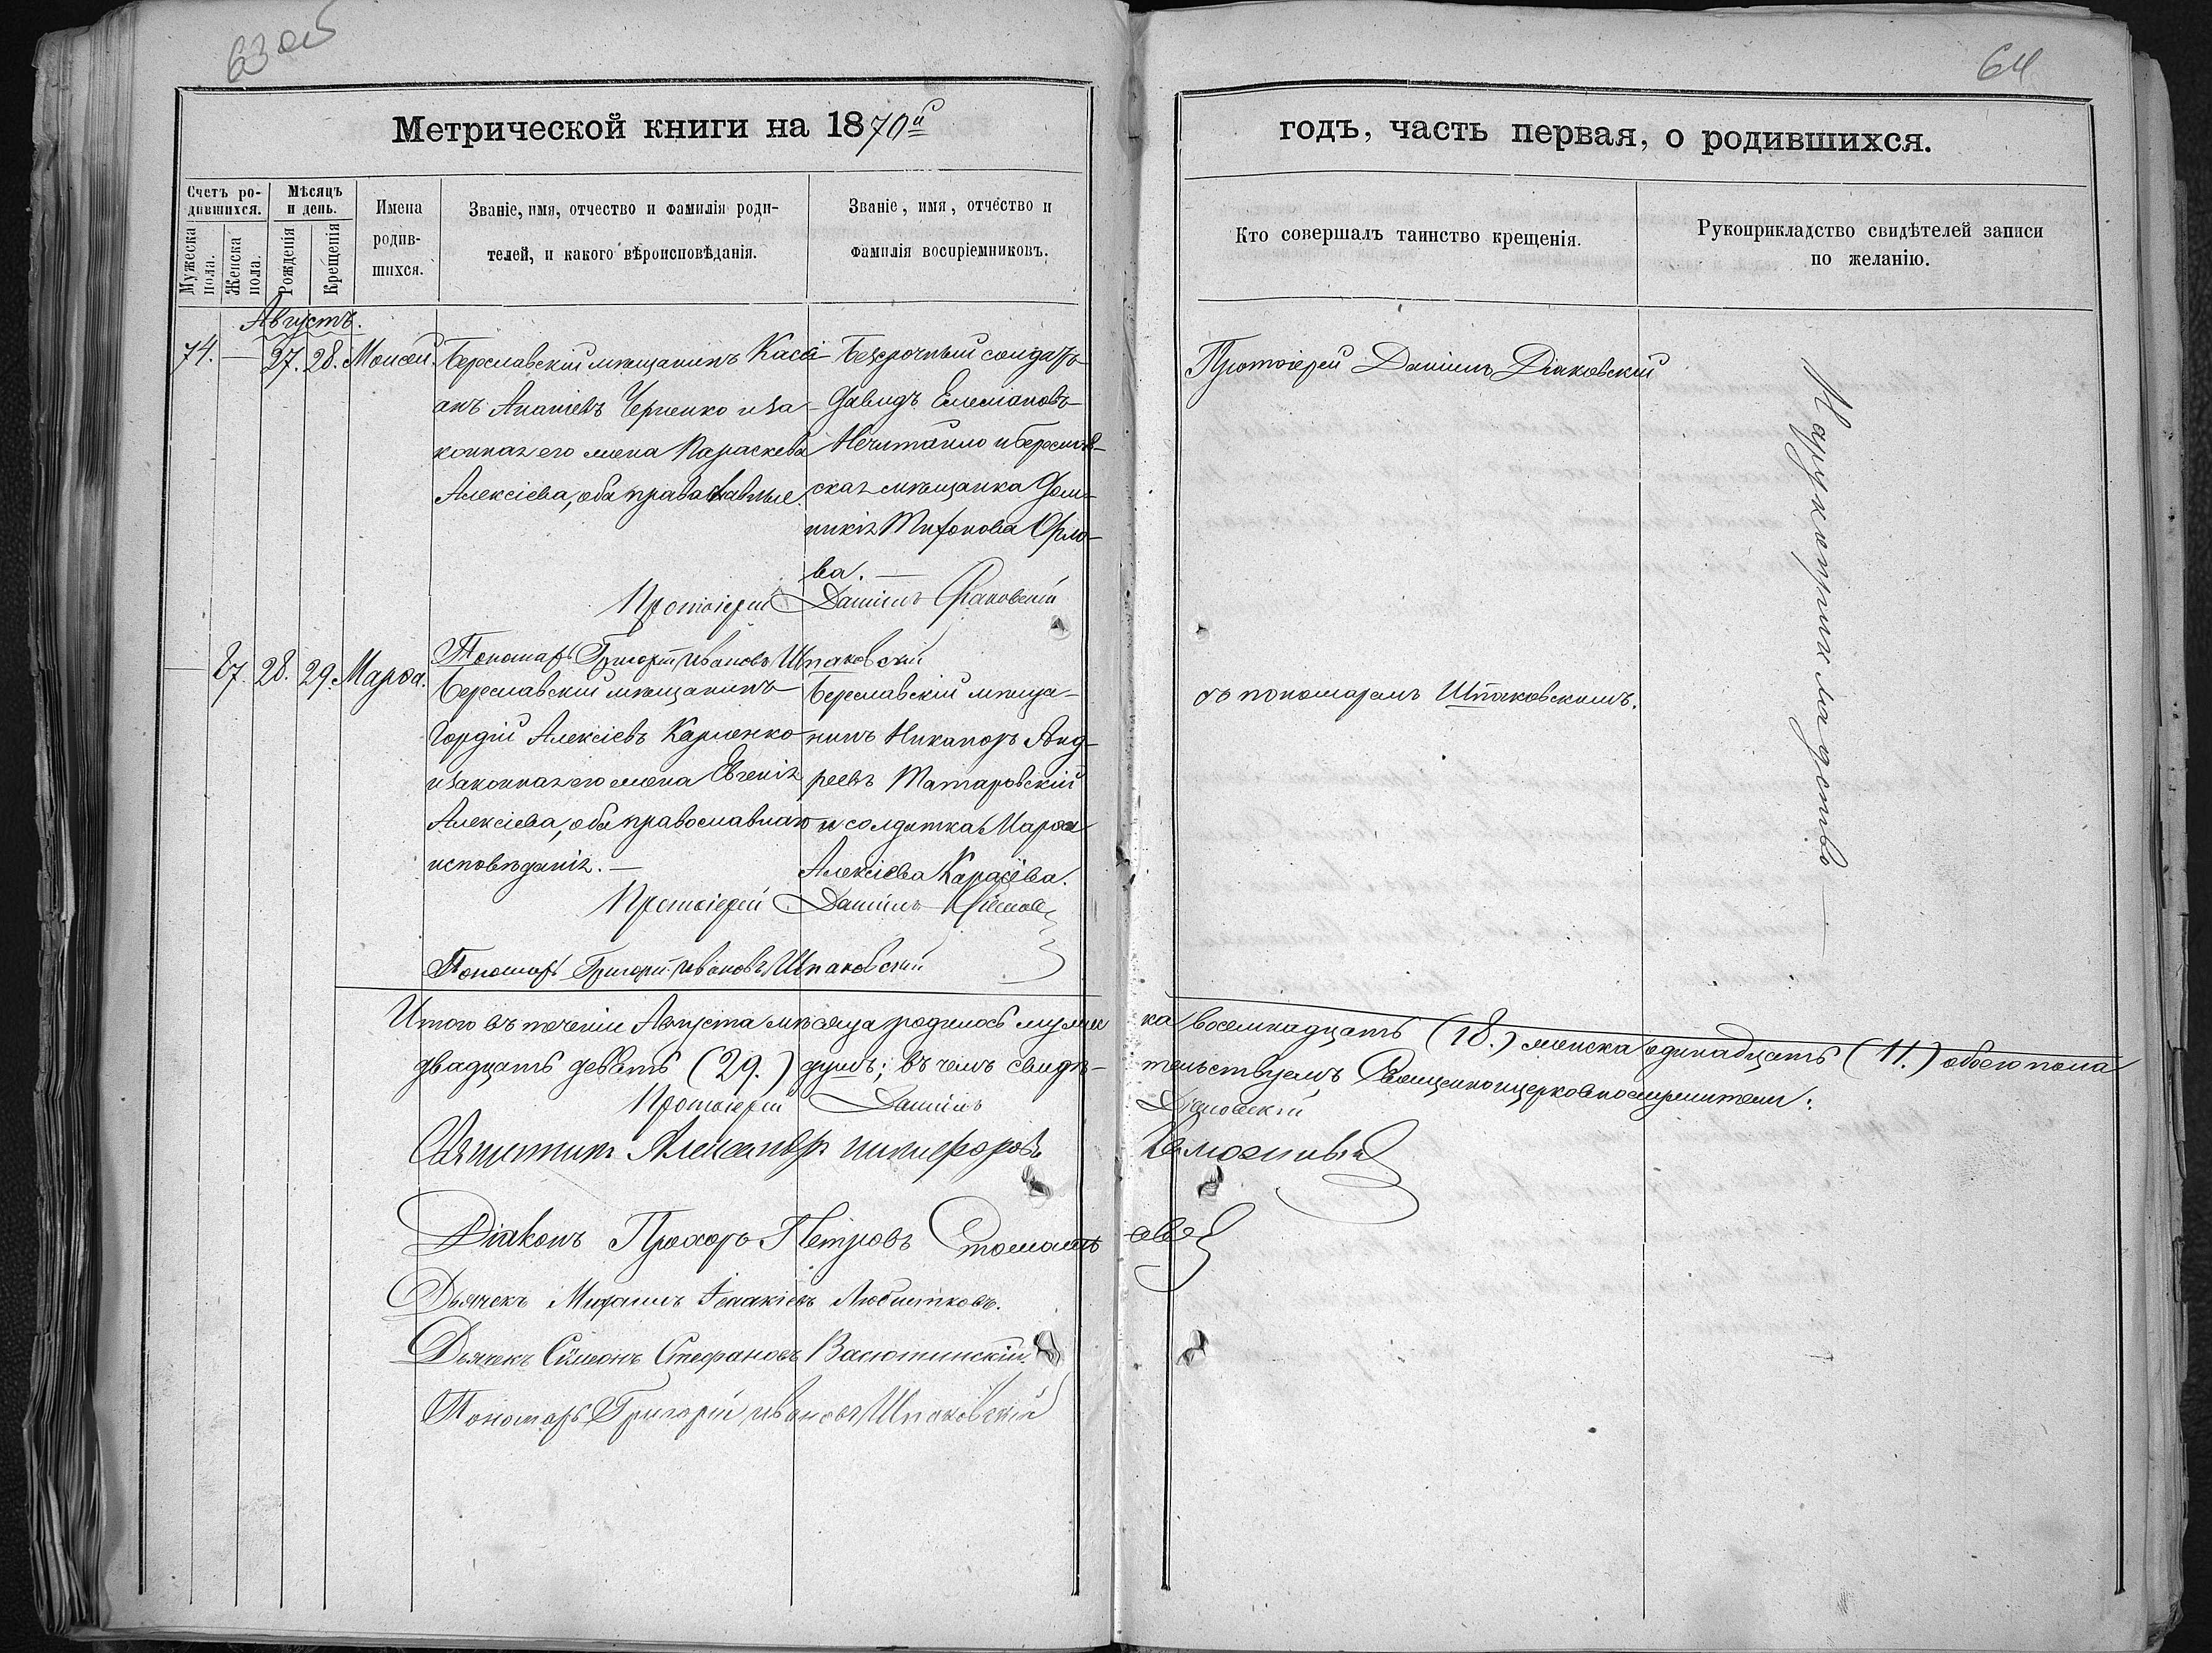 63 об
64
Метрической книги на 1870й
годъ, часть первая, о родившихся.
Счетъ ро-
дившихся.
Мужеска пола.
Женска пола.
Мѣсяцъ
и день.
Рожденія
Крещенія
Имена
родив-
шихся.
Званіе, имя, отчество и фамилія роди-
телей, и какого вѣроисповѣданія.
Званіе, имя, отчество и
фамилія воспріемниковъ.
Кто совершалъ таинство крещенія.
Рукоприкладство свидѣтелей записи
по желанію.
Августъ.
74. — 27. 28. Моисей.
Береславскій мѣщанинъ Касі-
анъ Ананіевъ Черненко и за-
конная его жена Параскева
Алексіева, оба православные.
Безсрочный солдатъ
Давидъ Емеліановъ
Нечитайло и Береслав-
ская мѣщанка Дом-
никія Тихонова Орло-
ва. —
Протоіерей Даніилъ Діаковскій
Протоіерей Даніилъ Діаковскій
Пономарь Григорій Ивановъ Шпаковскій
— 87. 28. 29. Марѳа.
Береславскій мѣщанинъ
Гордій Алексіевъ Карпенко
и законная его жена Евгенія
Алексіева, оба православнаго
исповѣданія. —
Береславскій мѣща-
нинъ Никаноръ Анд-
реевъ Татаровскій
и солдатка Марѳа
Алексіева Карасёва.
съ пономаремъ Шпаковскимъ.
Протоіерей Даніилъ
Пономарь Григорій Ивановъ Шпаковскій
Итого въ теченіи Августа мѣсяца родилось мужес ка восемнадцать (18.) женска одинадцать (11.) обоего пола
двадцать девять (29.) душъ; въ чемъ свидѣ- тельствуемъ Священноцерковнослужители:
Протоіерей Даніилъ Діаковскій
Священникъ Александръ Никифоровъ
Діаконъ Прохоръ Петровъ
Дьячекъ Михаилъ Іоакіевъ Любитковъ.
Дьячекъ Сѵмеонъ Стефановъ Васютинскій.
Пономарь Григорій Ивановъ Шпаковскій